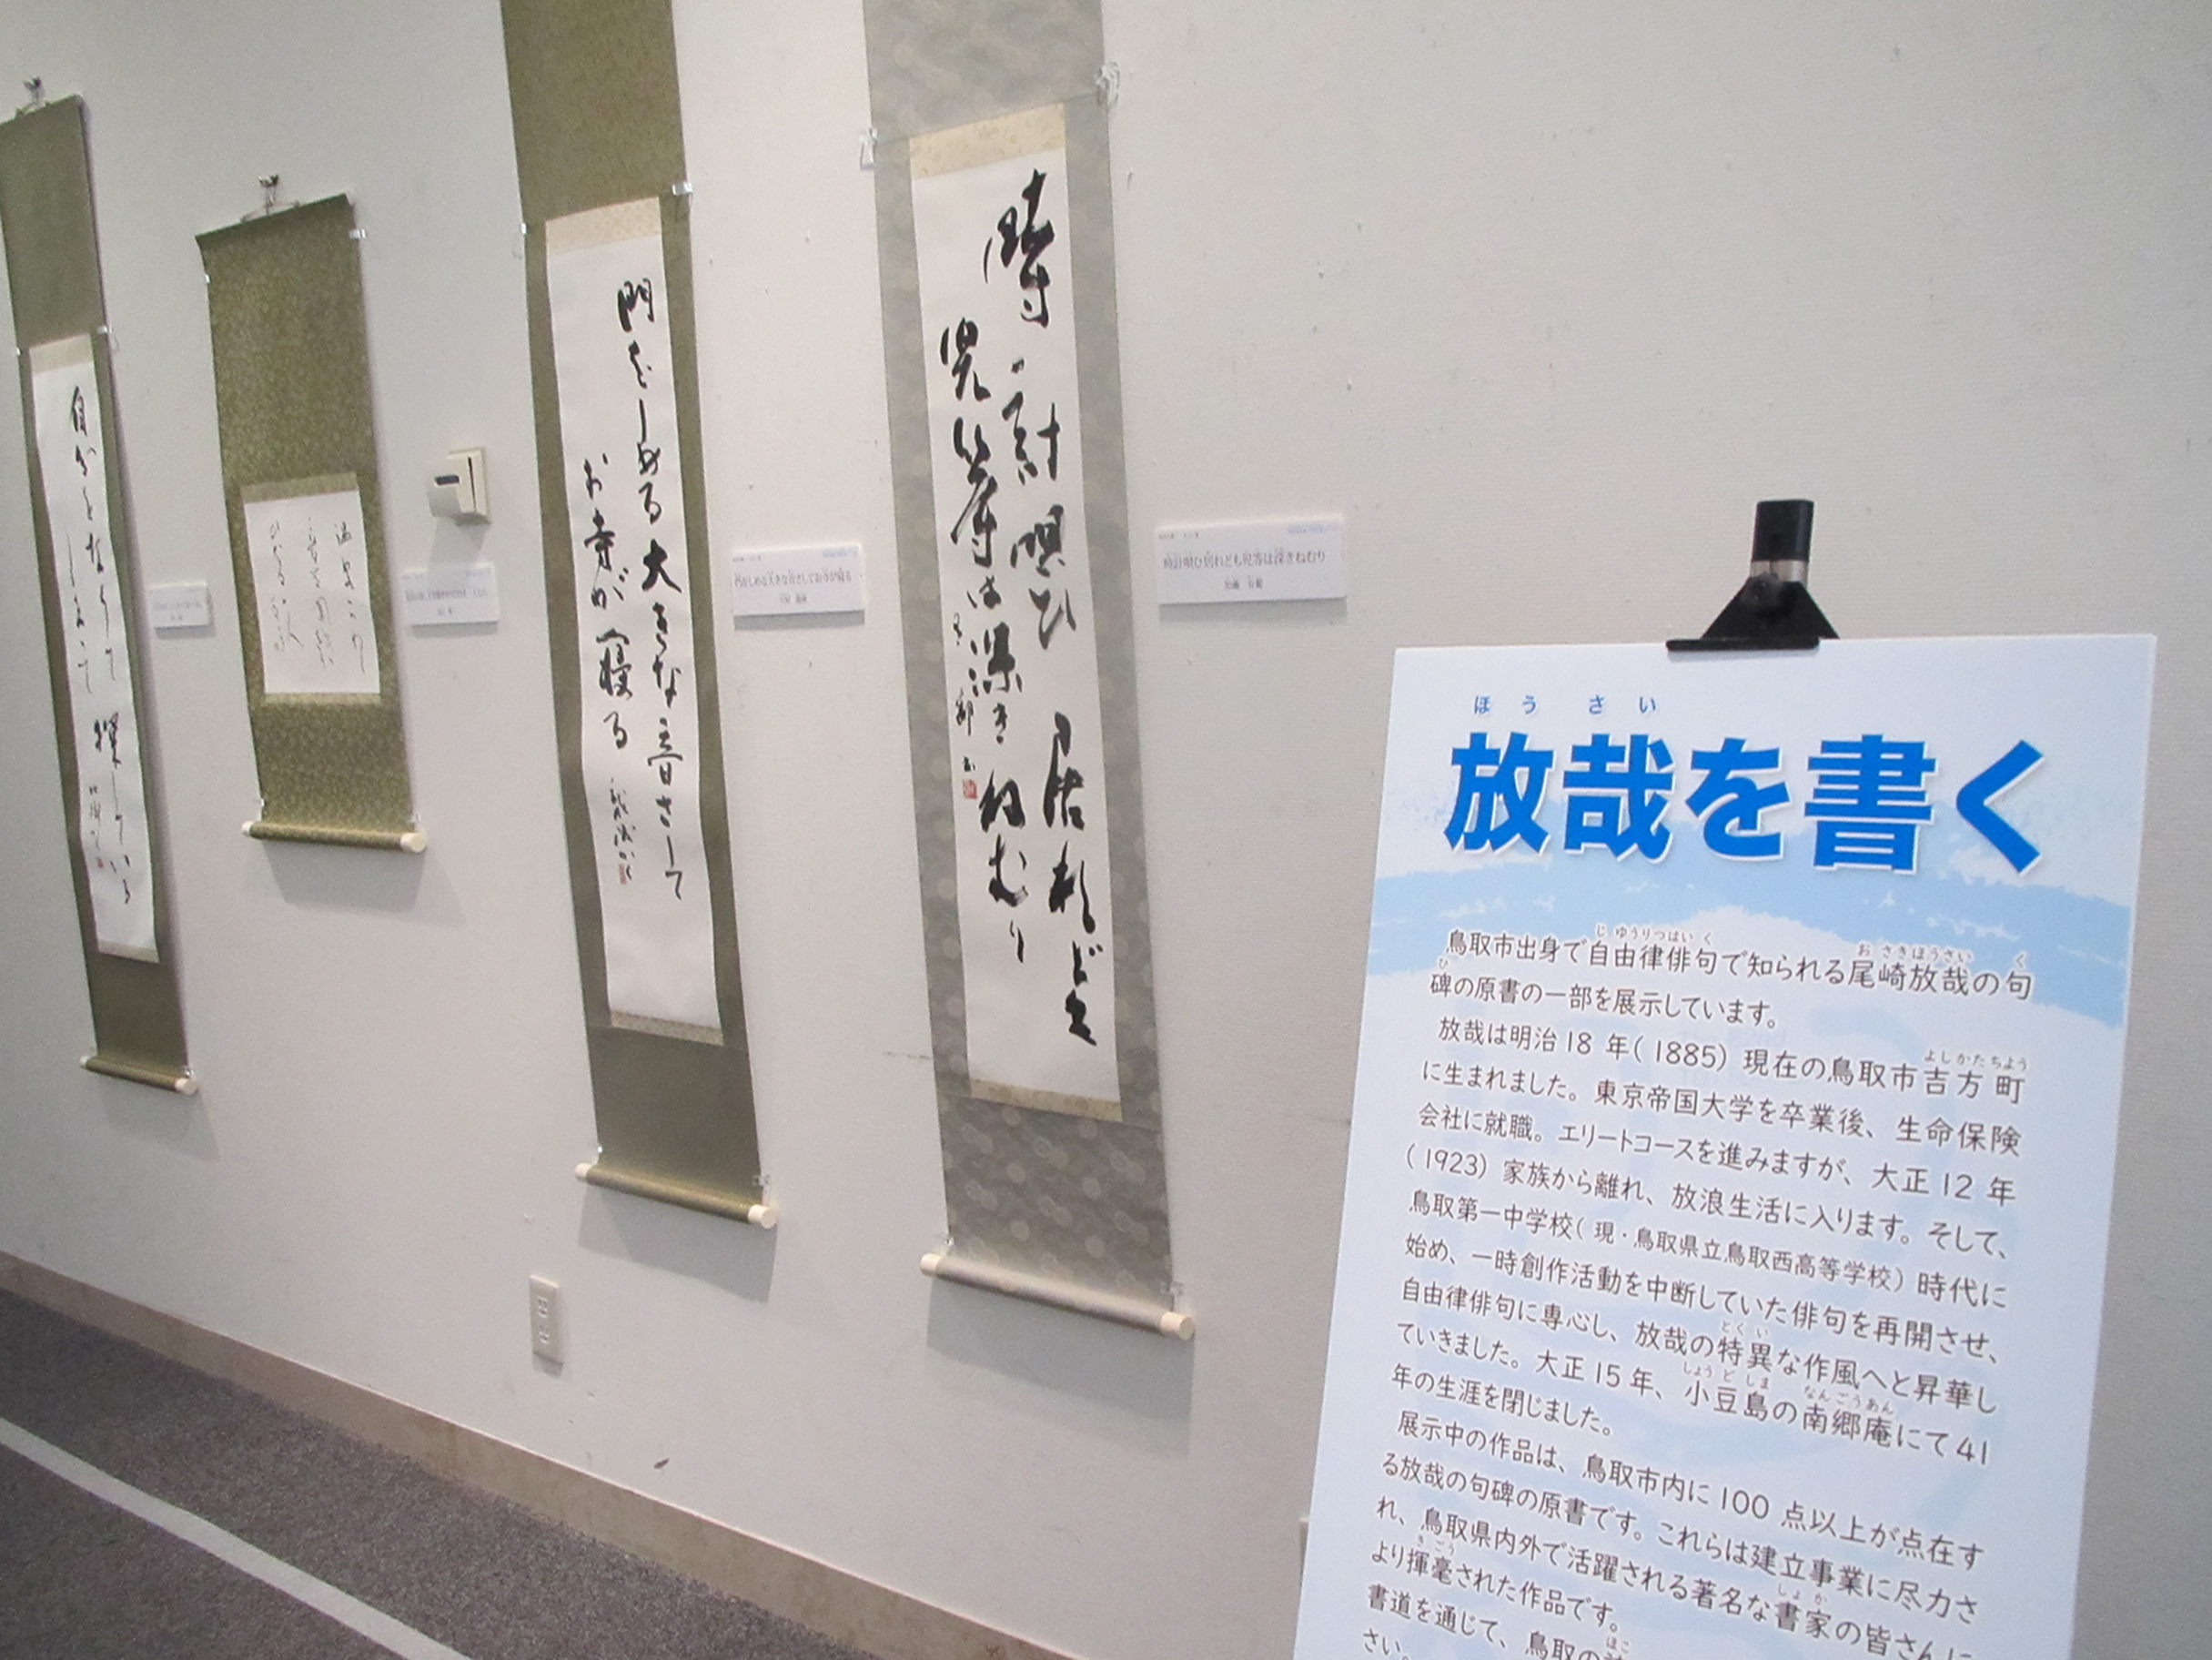 ほうさい
放哉を書く
鳥取市出身で自由律俳句で知られる尾崎放哉の句
碑の原書の一部を展示しています。
放哉は明治18年(1885)現在の鳥取市吉方町
に生まれました。東京帝国大学を卒業後、生命保険
会社に就職。エリートコースを進みますが、大正12年
(1923)家族から離れ、放浪生活に入ります。そして、
鳥取第一中学校(現・鳥取県立鳥取西高等学校)時代に
始め、一時創作活動を中断していた俳句を再開させ、
自由律俳句に専心し、放哉の特異な作風へと昇華し
ていきました。大正15年、小豆島の南郷庵にて41
年の生涯を閉じました。
展示中の作品は、鳥取市内に100点以上が点在す
る放哉の句碑の原書です。これらは建立事業に尽力さ
れ、鳥取県内外で活躍される著名な書家の皆さんに
より揮毫された作品です。
書道を通じて、鳥取の
さい。
時計唄ひ居れども
児等は深きねむり
時計唄ひ居れども児等は深きねむり
門をしめる大きな音さして
お寺が寝る
門をしめる大きな音さしてお寺が寝る
自分をなくして
しまつて探している